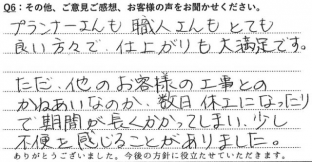 Q6：その他、ご意見ご感想、お客様の声をお聞かせください。
プランナーさんも職人さんもとても
良い方々で、仕上がりも大満足です。
ただ、他のお客様の工事との
かねあいなのか、数日休工になったり
で期間が長くかかってしまい、少し
不便を感じることがありました。
ありがとうございました。今後の方針に役立たせていただきます。